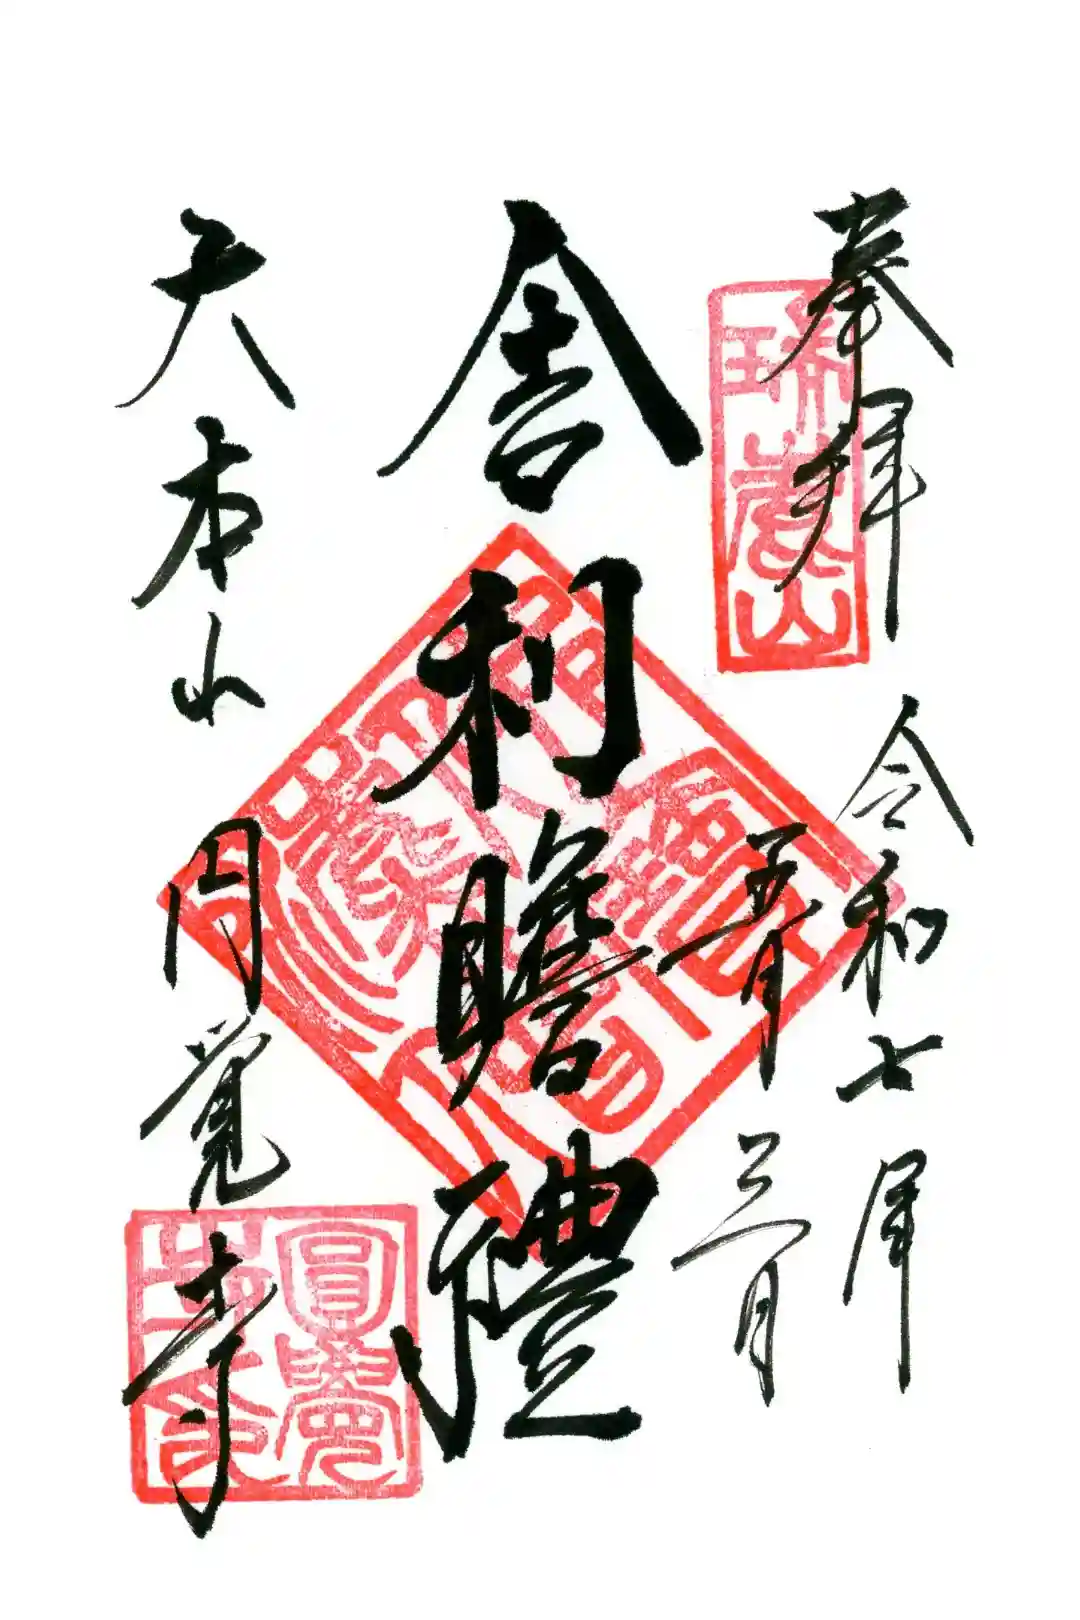 奉拝
令和七年
五月三日
舎利瞻禮
大本山 円覚寺
瑞鹿山
圓覺